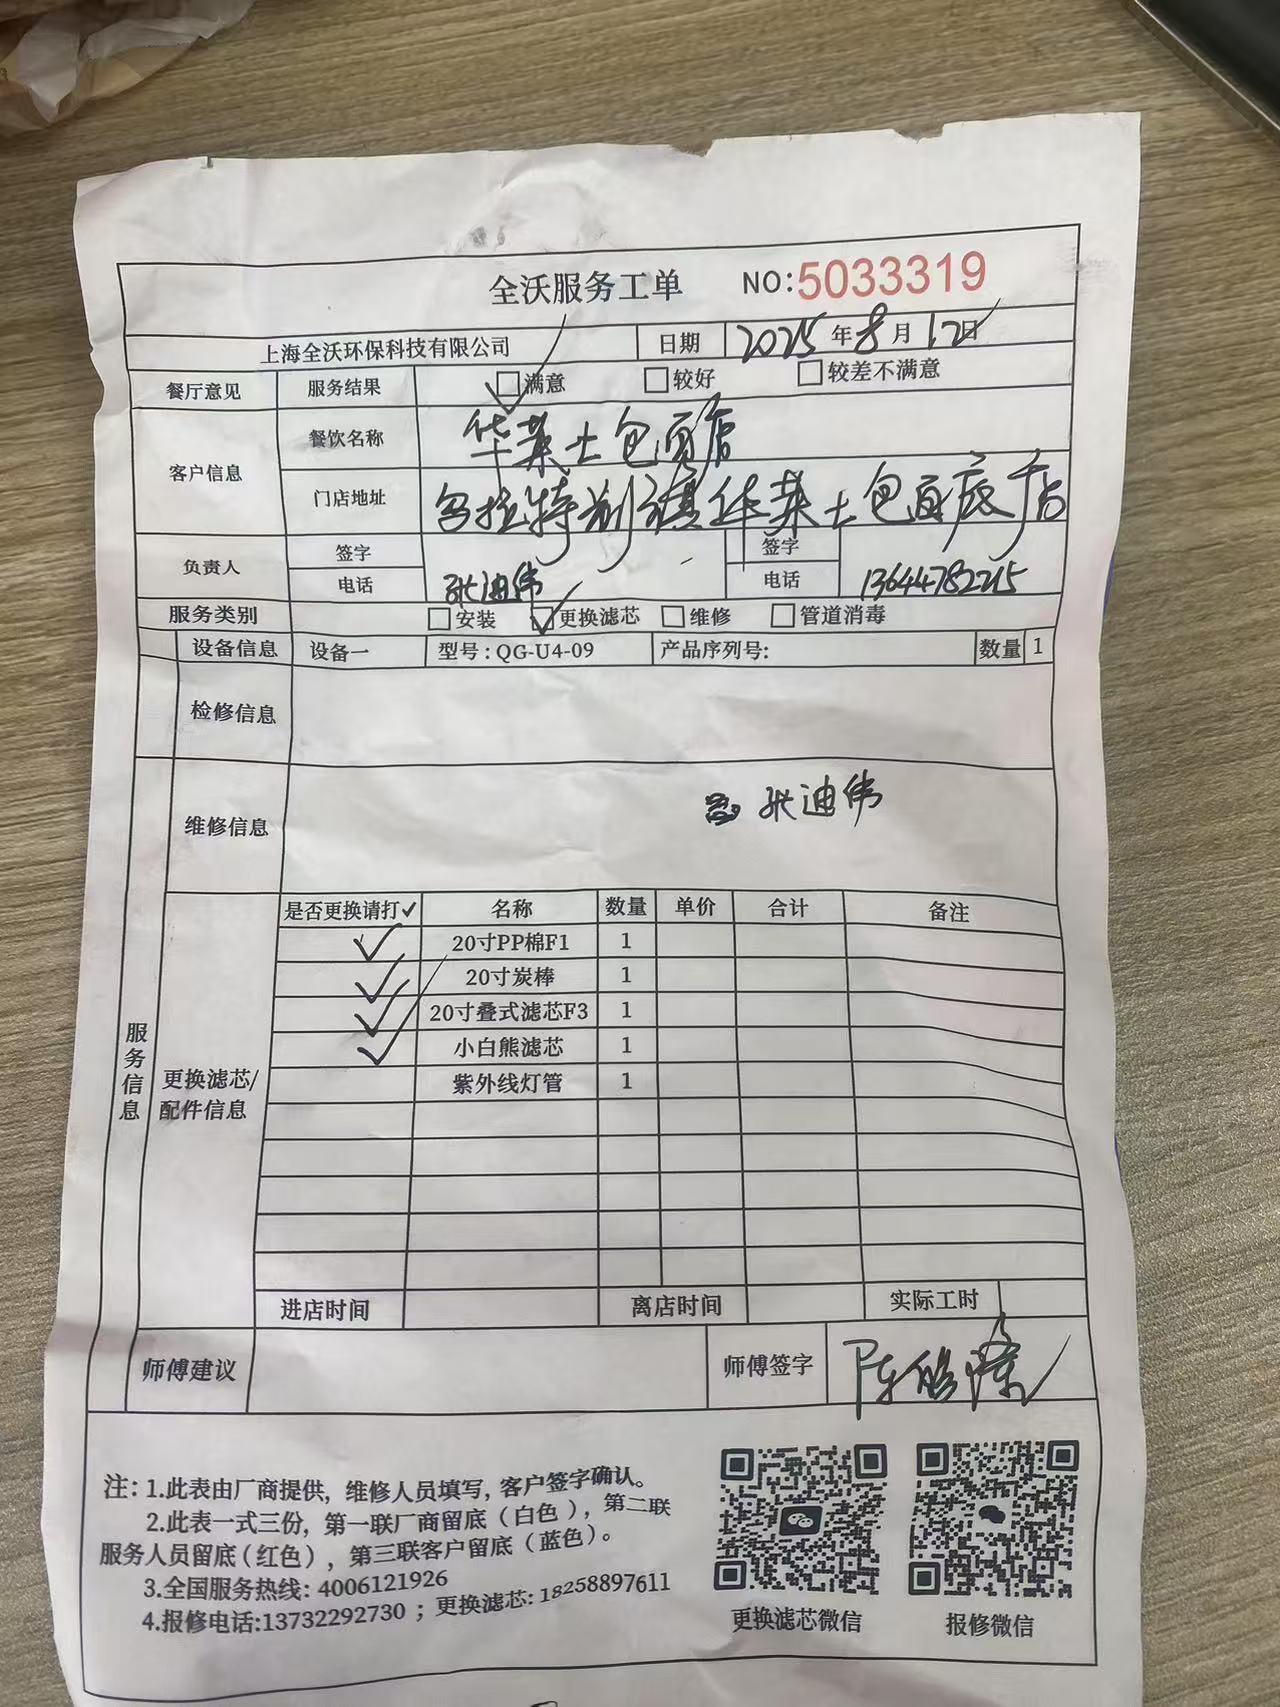 全沃服务工单 NO:5033319
上海全沃环保科技有限公司 日期 2025年8月12日
餐厅意见 服务结果 满意 较好 较差不满意
客户信息 餐饮名称 华莱士包面店
门店地址 乌拉特前旗华莱士包面底店
负责人 签字 签字
电话 张迪伟 电话 13644782215
服务类别 安装 更换滤芯 维修 管道消毒
设备信息 设备一 型号:QG-U4-09 产品序列号: 数量 1
检修信息
维修信息 张迪伟
服务信息
更换滤芯/
配件信息
是否更换请打✓ 名称 数量 单价 合计 备注
✓ 20寸PP棉F1 1
✓ 20寸炭棒 1
✓ 20寸叠式滤芯F3 1
✓ 小白熊滤芯 1
紫外线灯管 1
进店时间 离店时间 实际工时
师傅建议 师傅签字
注:1.此表由厂商提供,维修人员填写,客户签字确认。
2.此表一式三份,第一联厂商留底(白色),第二联
服务人员留底(红色),第三联客户留底(蓝色)。
3.全国服务热线:4006121926
4.报修电话:13732292730;更换滤芯:18258897611
更换滤芯微信 报修微信